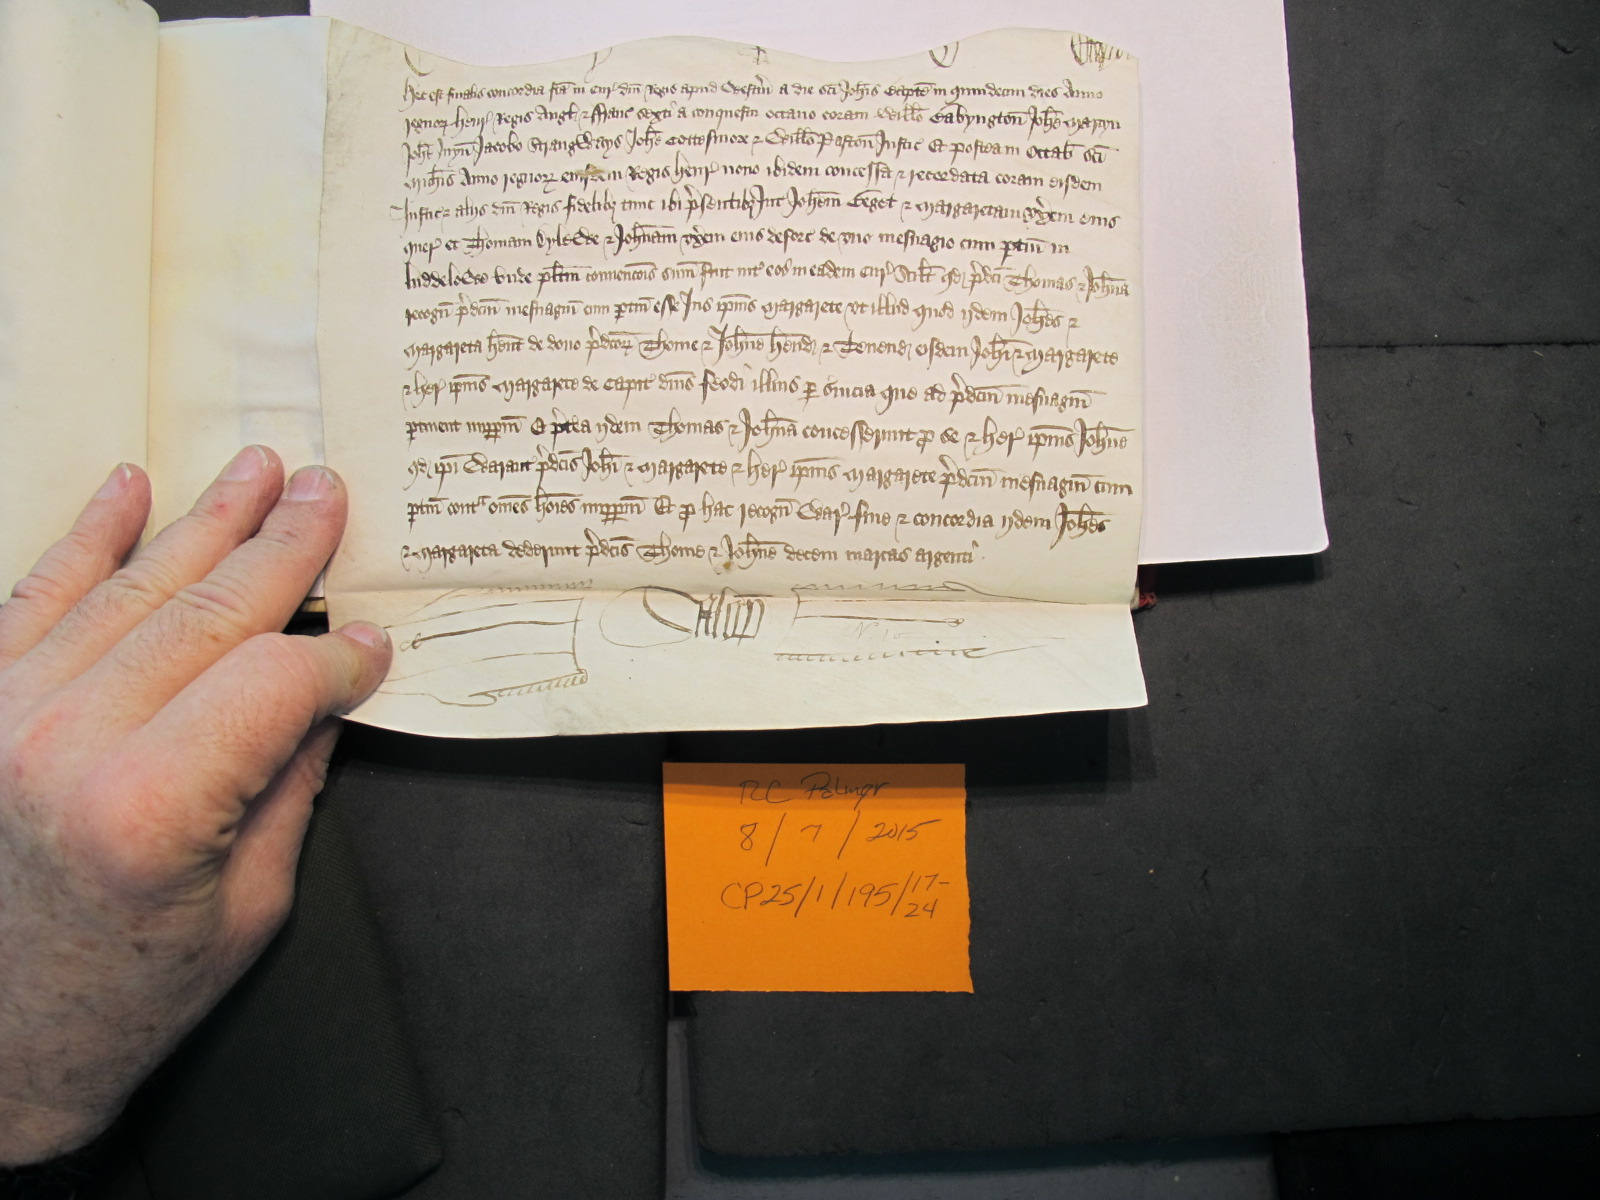 Hec est finalis concordia fca in Cur dni Regis apud Westm a die sci Johis Bapte in quindecim dies Anno
regnor Henr Regis Angl & Franc sexti a conquestu octavo coram Willo Babyngton Johe Martyn
Johe Juyn Jacobo Strangways Johe Cottesmore & Willo Paston Justic Et postea in Octab sci
Michis Anno regnor eiusdem Regis Henr nono ibidem concessa & recordata coram eisdem
Justic & aliis dni Regis fidelibz tunc ibi psentibz Int Johem & Margaretam uxem eius
quer et Thomam & Johnam uxem eius deforc de uno mesuagio cum ptin in
Luddelowe unde plitm convencois sum fuit int eos in eadem Cur Scilt qd pdci Thomas & Johna
recogn pdcm mesuagiu cum ptin esse Jus ipius Margarete ut illud quod iidem Johes &
Margareta hent de dono pdcor Thome & Johne Hend & Tenend eisdem Johi & Margarete
& her ipius Margarete de Capit dnis feodi illius p svicia que ad pdcm mesuagiu
ptinent imppm Et ptea iidem Thomas & Johna concesserunt p se & her ipius Johne
qd ipi Warant pdcis Johi & Margarete & her ipius Margarete pdcm mesuagiu cum
ptin conta omes hoies imppm Et p hac recogn War fine & concordia iidem Johes
& Margareta dederunt pdcis Thome & Johne decem marcas argenti
Salop
RC Palmer
8/7/2015
CP25/1/195/17-
24